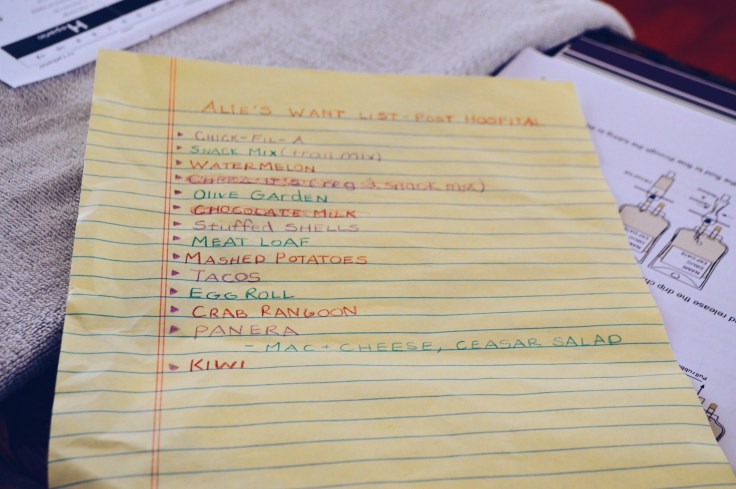 Heparin
ALIE'S WANT LIST - POST HOSPITAL
CHICK-FIL-A
SNACK MIX (trail mix)
WATERMELON
CHEEZ-IT'S (reg & snack mix)
OLIVE GARDEN
CHOCOLATE MILK
Stuffed SHELLS
MEAT LOAF
MASHED POTATOES
TACOS
EGG ROLL
CRAB RANGOON
PANERA
- MAC + CHEESE, CEASAR SALAD
KIWI
and release the drip ch